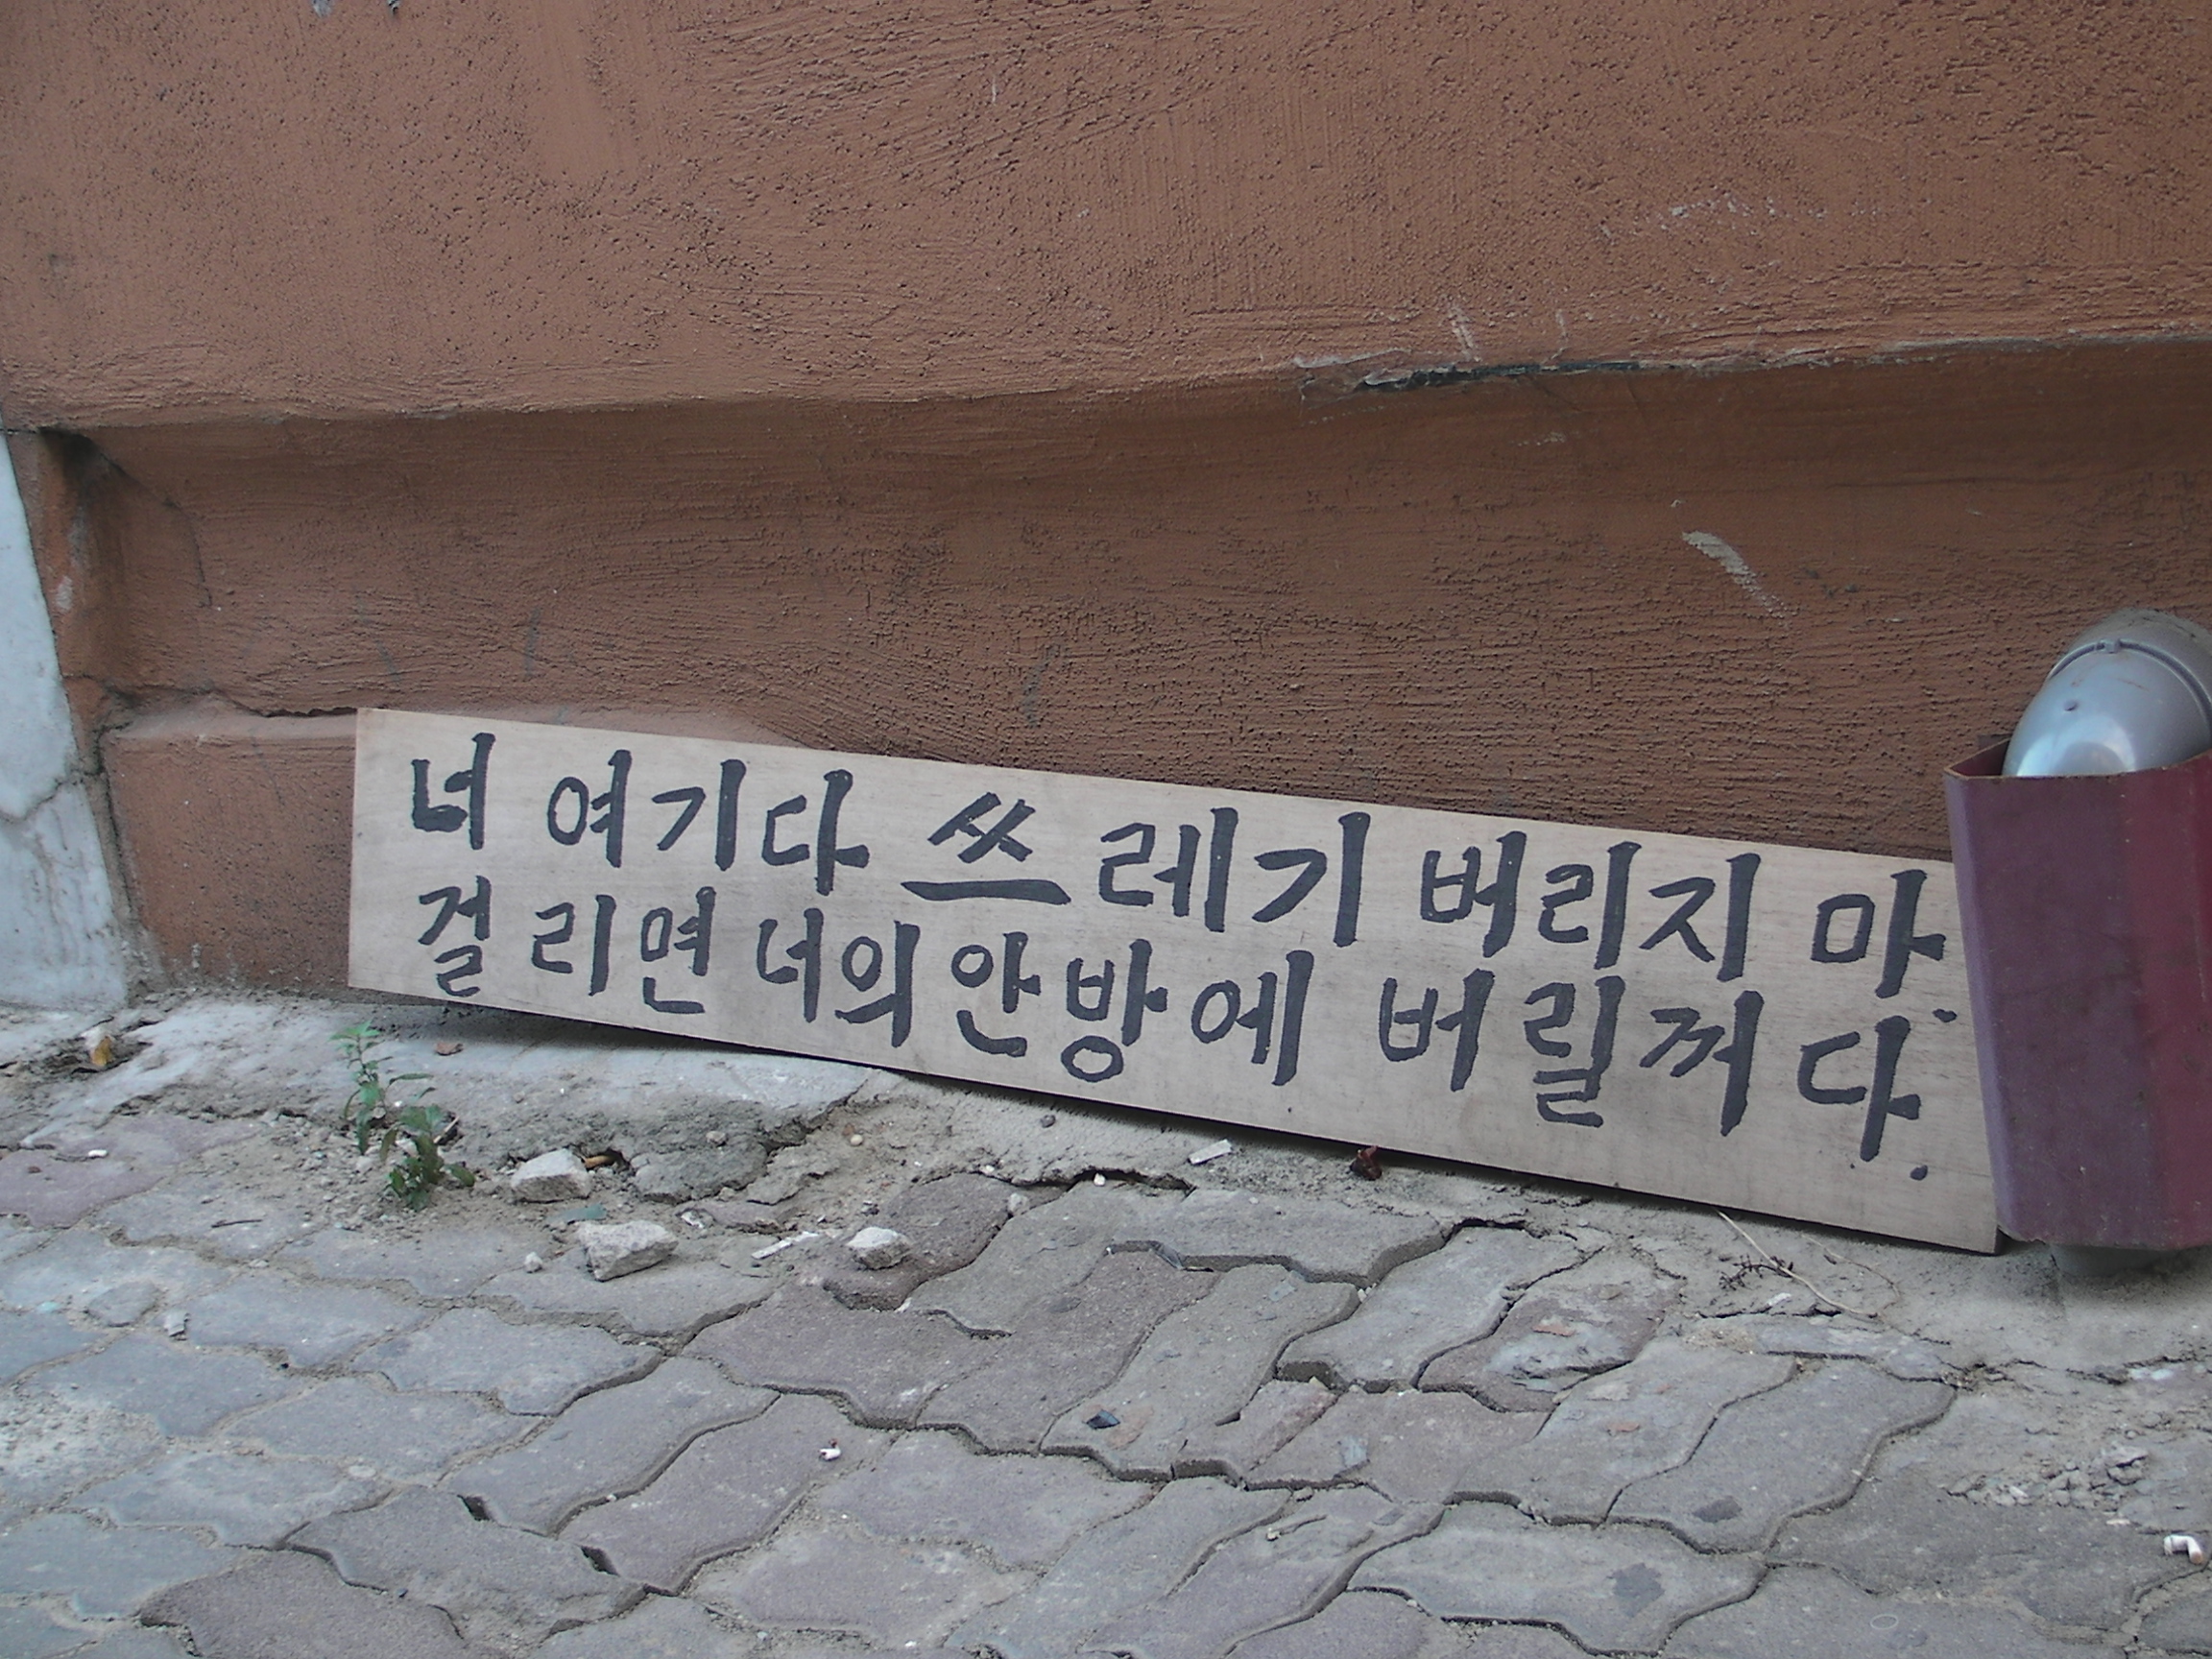 너 여기다 쓰레기 버리지 마.
걸리면 너의 안방에 버릴꺼다.